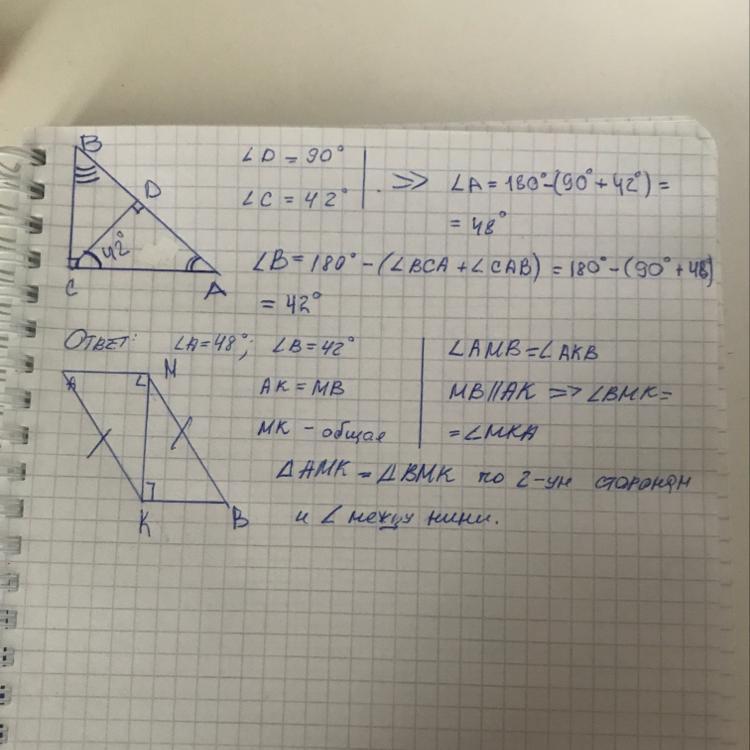 B
D
42°
C
A
∠D = 90°
∠C = 42°
=> ∠A = 180° - (90° + 42°) =
= 48°
∠B = 180° - (∠BCA + ∠CAB) = 180° - (90° + 48)
= 42°
Ответ: ∠A = 48°; ∠B = 42°
A
M
K
B
AK = MB
MK - общая
∠AMB = ∠AKB
MB || AK => ∠BMK =
= ∠MKA
△AMK = △BMK по 2-ум сторонам
и ∠ между ними.